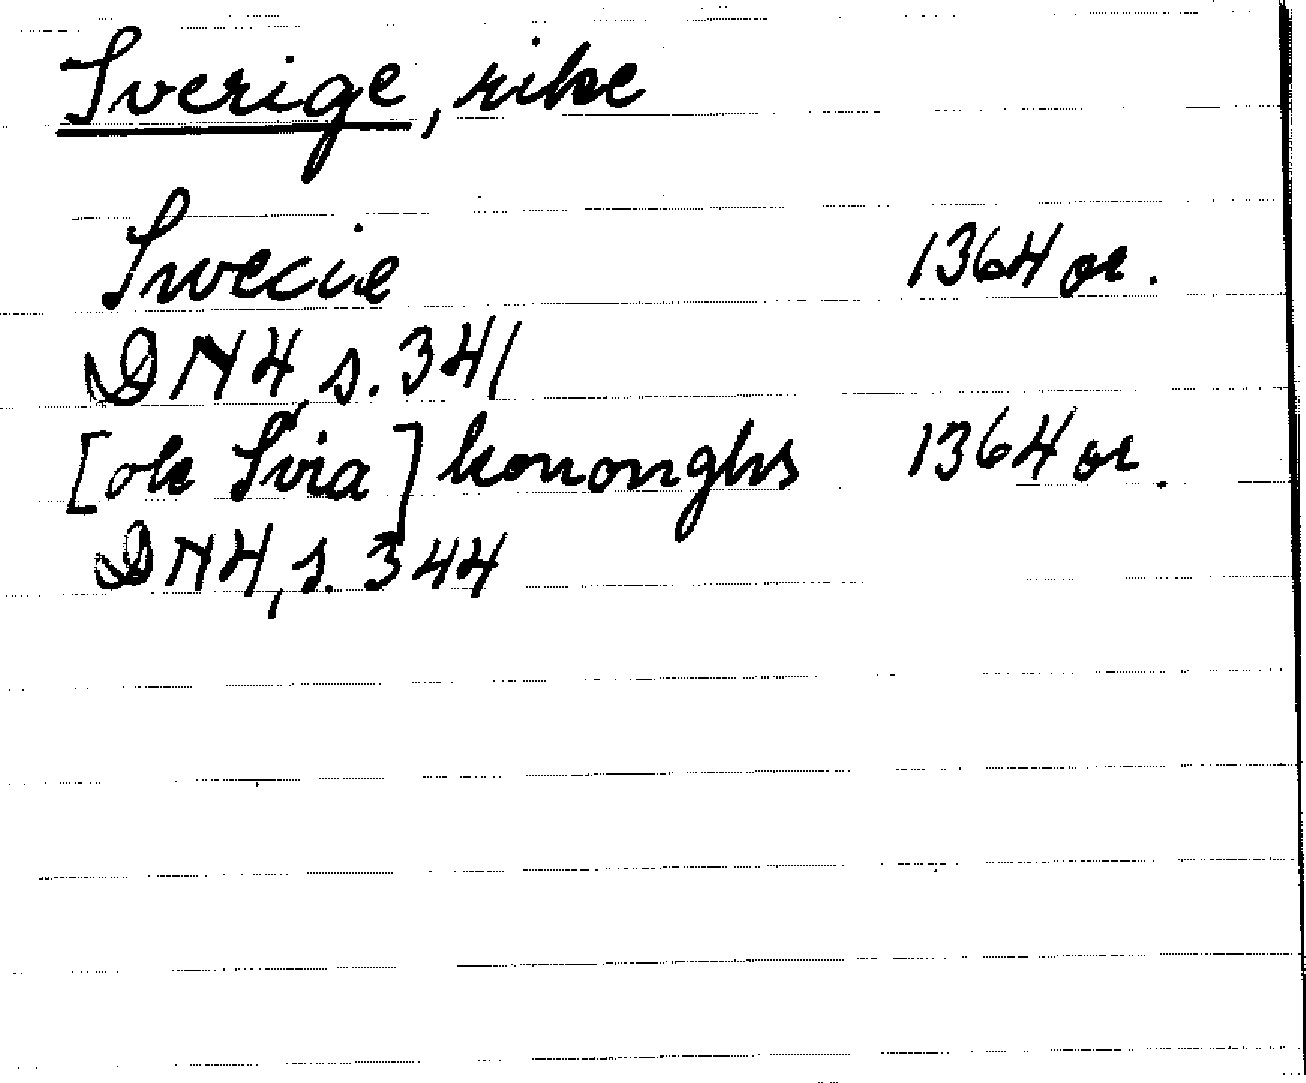 Sverige, rike
Swecie 1364 or.
DN4, s. 341
[ok Svia] kononghs 1364 or.
DN4, s. 344